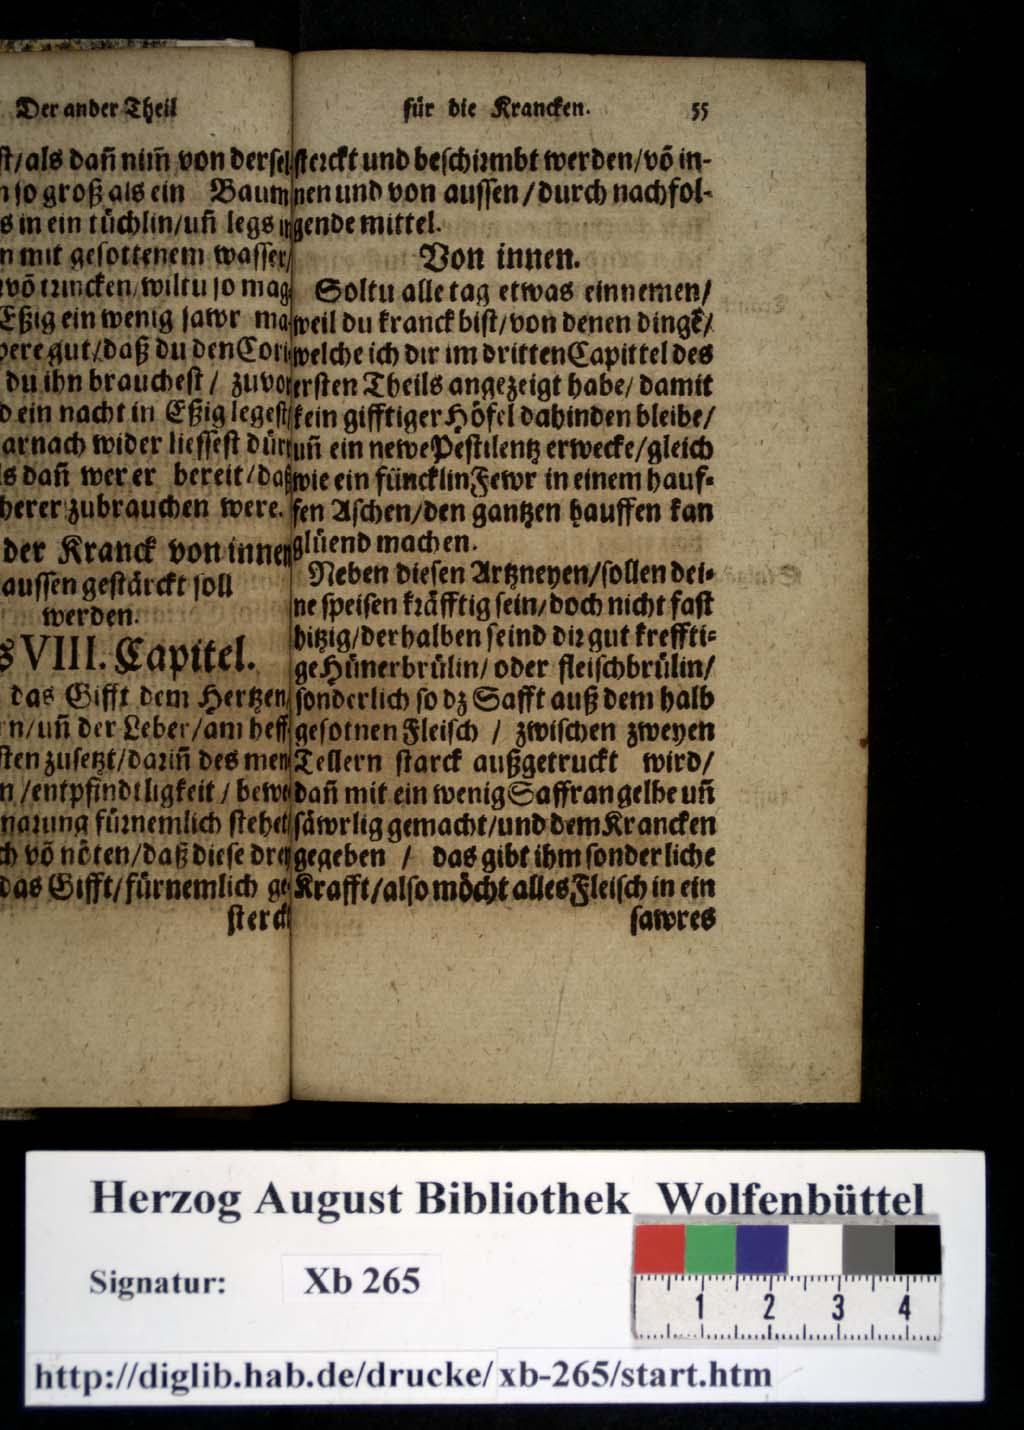 Der ander Theil
ſt/als dañ nim̃ von derſel
ſo groß als ein Baum
s in ein tüchlin/uñ legs
n mit geſottenem waſſer/
võ trincken/wiltu ſo mag
Eßig ein wenig ſawr ma
gut/daß du den Cori
du ihn braucheſt / zuvor
ein nacht in Eßig legeſt/
arnach wider lieſſeſt dürr
s dañ wer er bereit/daß
herer zubrauchen were.
der Kranck von innen
auſſen geſtärckt ſoll
werden.
s VIII. Capitel.
das Gifft dem Hertzen
n/uñ der Leber/am heff
ſten zuſetzt/dariñ des men
n/entpfindtligkeit / bewe
narung fürnemlich ſtehet
ch võ nöten/daß dieſe drey
das Gifft/fürnemlich ge
ſterck
für die Krancken. 55
ſterckt und beſchirmbt werden/võ in-
nen und von auſſen/durch nachfol-
gende mittel.
Von innen.
Soltu alle tag etwas einnemen/
weil du kranck biſt/von denen dingẽ/
welche ich dir im dritten Capittel des
erſten Theils angezeigt habe/damit
kein gifftiger Höfel dahinden bleibe/
uñ ein newe Peſtilentz erwecke/gleich
wie ein füncklin Fewr in einem hauf-
fen Aſchen/den gantzen hauffen kan
glüend machen.
Neben dieſen Artzneyen/ſollen dei-
ne ſpeiſen kräfftig ſein/doch nicht faſt
hitzig/derhalben ſeind dir gut kreffti-
ge Hünerbrülin/ oder fleiſchbrülin/
ſonderlich ſo dz Safft auß dem halb
geſotnen Fleiſch / zwiſchen zweyen
Tellern ſtarck außgetruckt wird/
dañ mit ein wenig Saffran gelbe uñ
ſäwrlig gemacht/und dem Krancken
gegeben / das gibt ihm ſonderliche
Krafft/alſo möcht alles Fleiſch in ein
ſawres
Herzog August Bibliothek Wolfenbüttel
Signatur: Xb 265
1 2 3 4
http://diglib.hab.de/drucke/xb-265/start.htm